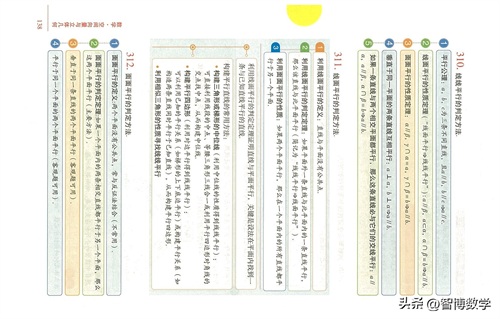 310. 线线平行的判定方法.
1 平行公理：a，b，c为三条不同直线，若a//b，b//c⇒a//c.
2 线面平行的性质定理（“线面平行⇒线线平行”）：a//β，a⊂α，α∩β=b⇒a//b.
3 面面平行的性质定理：α//β，γ∩α=a，γ∩β=b⇒a//b.
4 垂直于同一平面的两条直线互相平行：a⊥α，b⊥α⇒a//b.
5 如果一条直线与两个相交平面都平行，那么这条直线必与它们的交线平行：a//
α，a//β，α∩β=b⇒a//b.
311. 线面平行的判定方法.
1 利用线面平行的定义：直线与平面没有公共点.
2 利用线面平行的判定定理：如果平面外一条直线与此平面内的一条直线平行，
那么该直线与此平面平行（“线线平行⇒线面平行”）.
3 利用面面平行的性质：如果两个平面平行，那么在一个平面内的所有直线都平
行于另一个平面.
利用线面平行的判定定理证明直线与平面平行，关键是设法在平面内找到一
条与已知直线平行的直线.
构建平行直线的常用方法：
• 构建三角形或梯形的中位线
• 构建平行四边形
• 利用相似三角形的性质寻找线线平行
312. 面面平行的判定方法.
1 面面平行的定义：两个平面没有公共点，常与反证法结合（不常用）.
2 面面平行的判定定理：若一个平面内的两条相交直线都平行于另一个平面，那么
这两个平面平行（主要方法）.
3 垂直于同一条直线的两个平面平行（客观题可用）.
4 平行于同一个平面的两个平面平行（客观题可用）.
138
数学·空间向量与立体几何
头条@智博数学